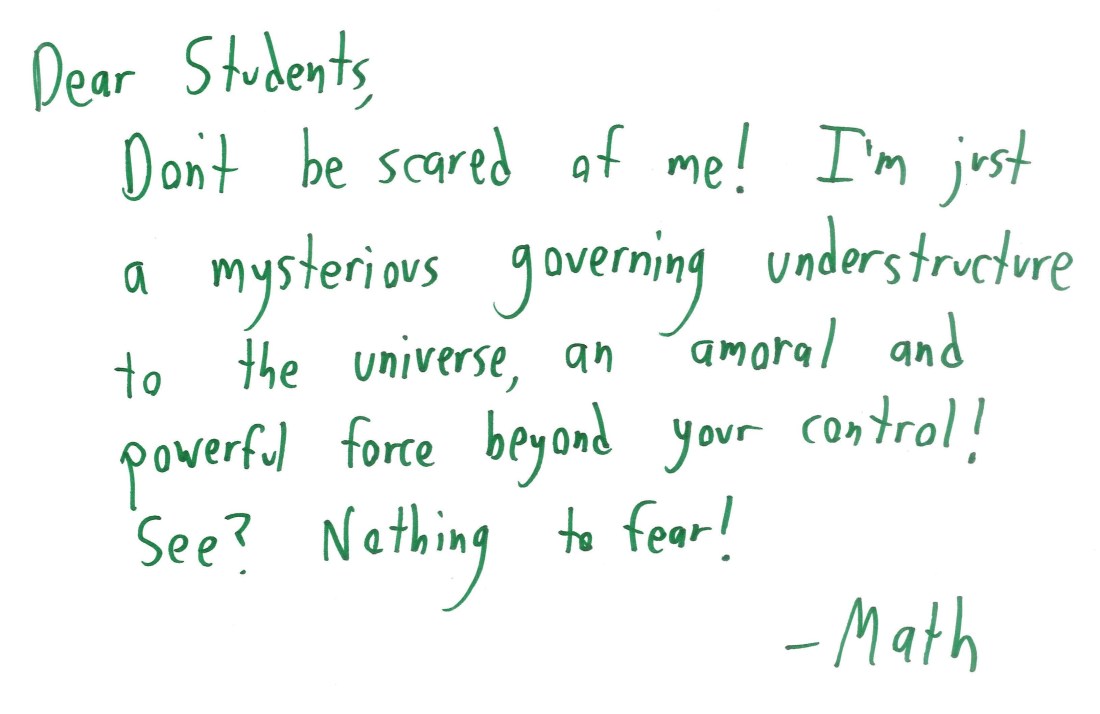 Dear Students,
Don't be scared of me! I'm just
a mysterious governing understructure
to the universe, an amoral and
powerful force beyond your control!
See? Nothing to fear!
-Math